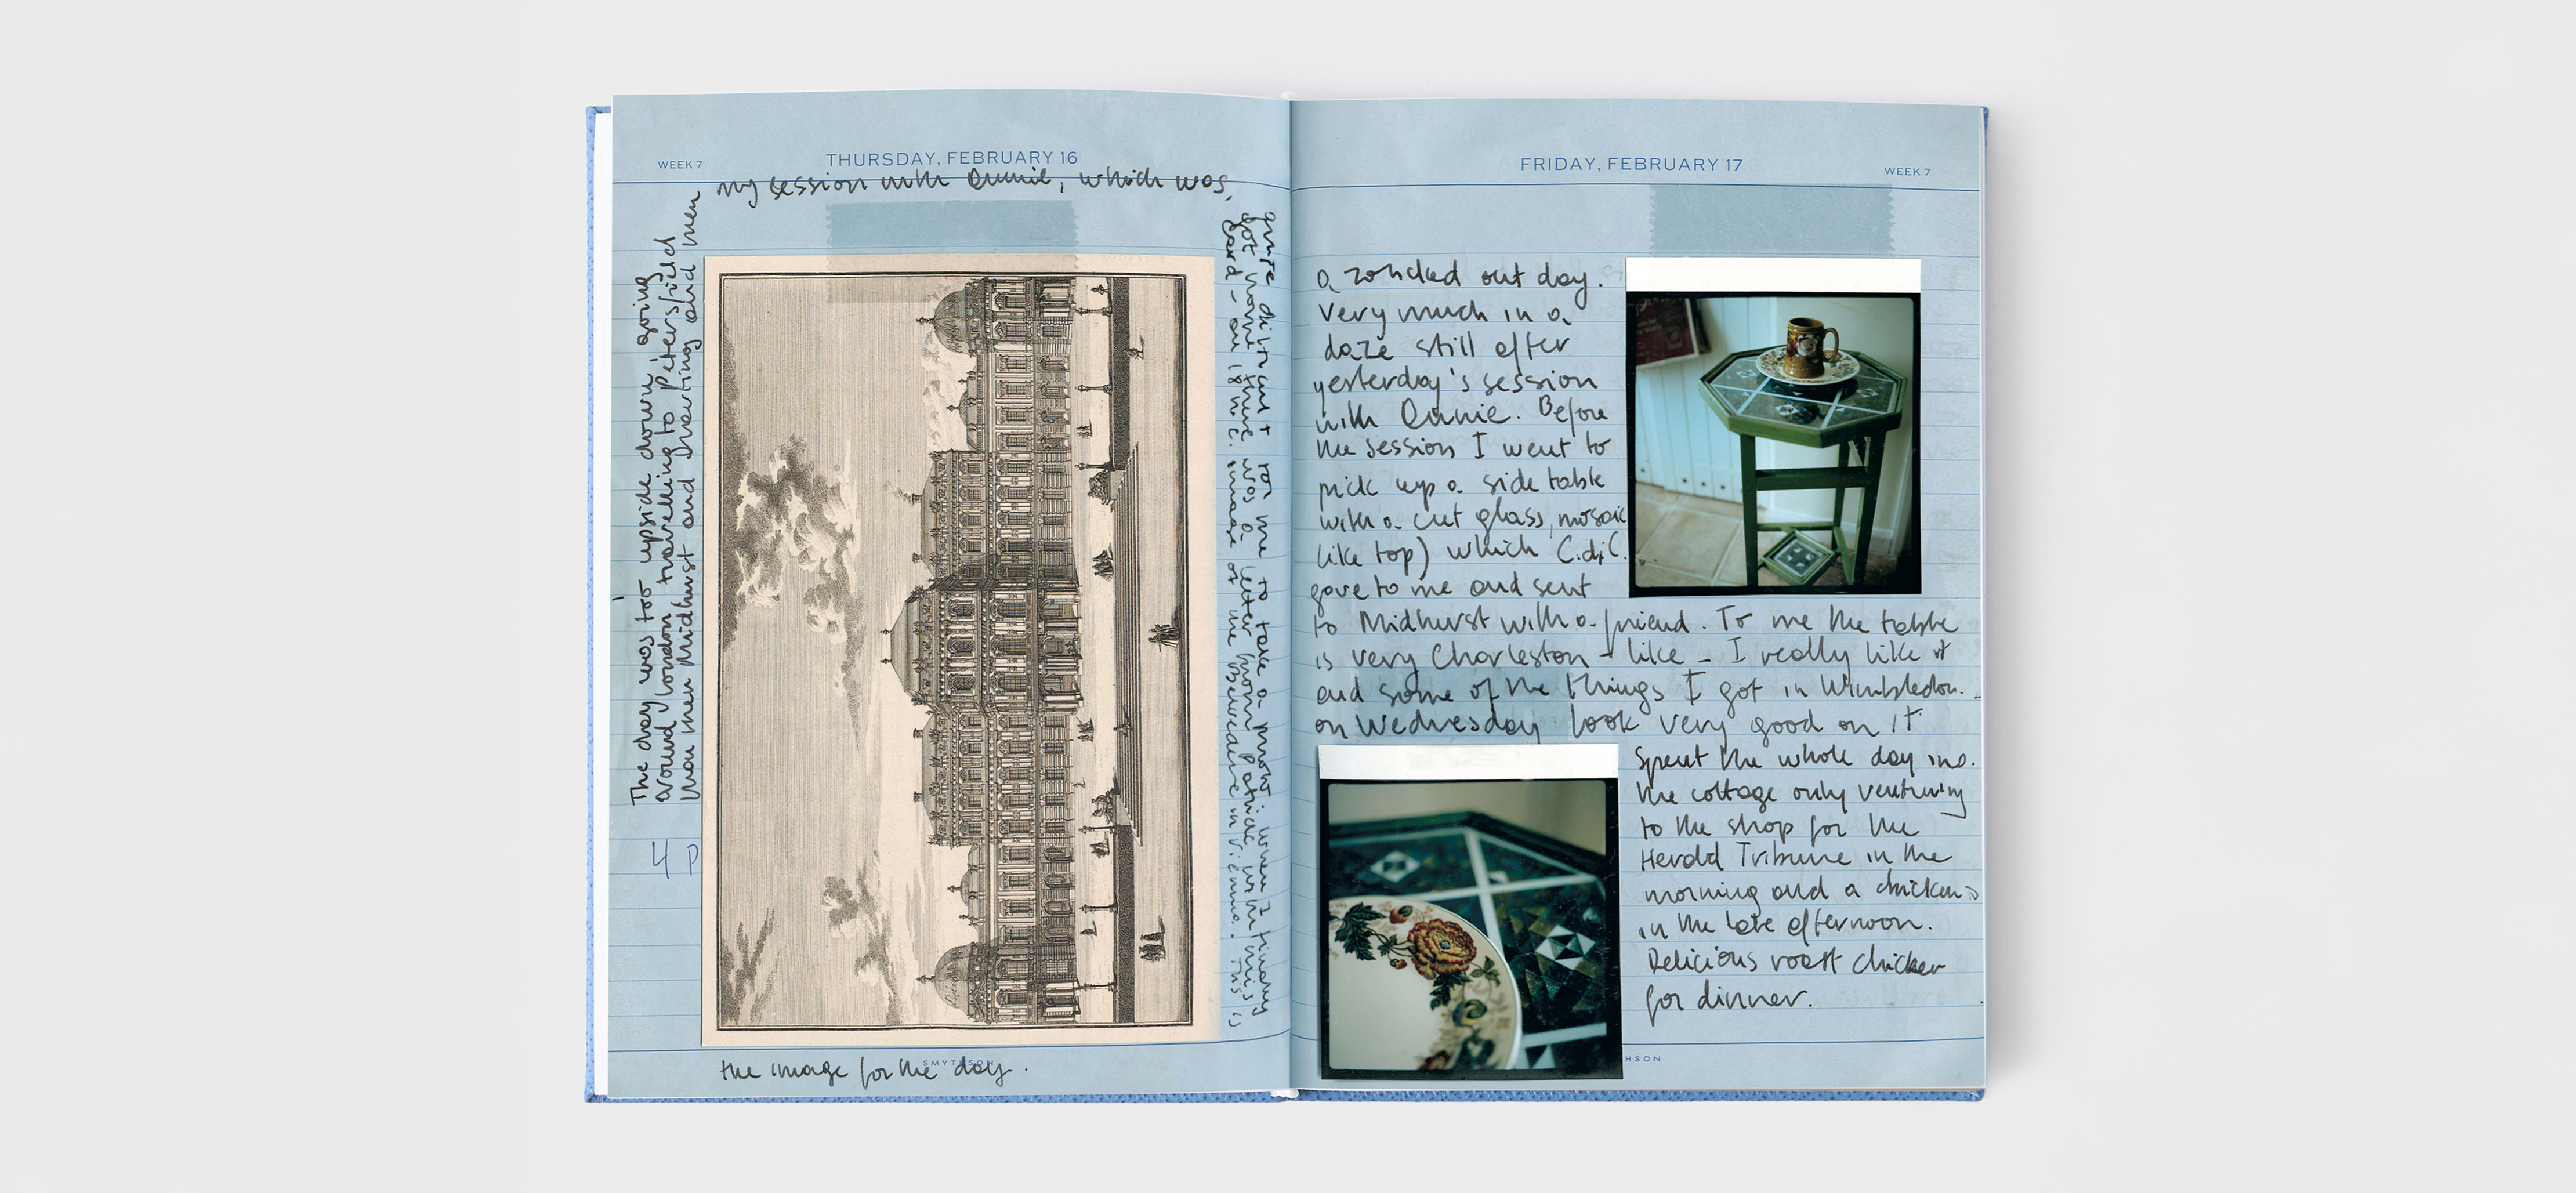 WEEK 7
THURSDAY, FEBRUARY 16
The day was too upside down, going
around London, travelling to Petersfield
then Midhurst and and then
my session with which was,
quite difficult for me to take a photo: when I finally
got home there was a letter from Patrick with this
card - an 18th C. image of the Belvedere in Vienna. This is
the image for the day.
4 P
SMYTHSON
FRIDAY, FEBRUARY 17
WEEK 7
a zonked out day.
Very much in a
daze still after
yesterday's session
with Before
the session I went to
pick up a side table
with a cut glass, mosaic
like top) which C.d.C.
gave to me and sent
to Midhurst with a friend. To me the table
is very Charleston - like - I really like it
and some of the things I got in Wimbledon
on Wednesday look very good on it
Spent the whole day in
the cottage only venturing
to the shop for the
Herald Tribune in the
morning and a chicken
in the late afternoon.
Delicious roast chicken
for dinner.
HSON